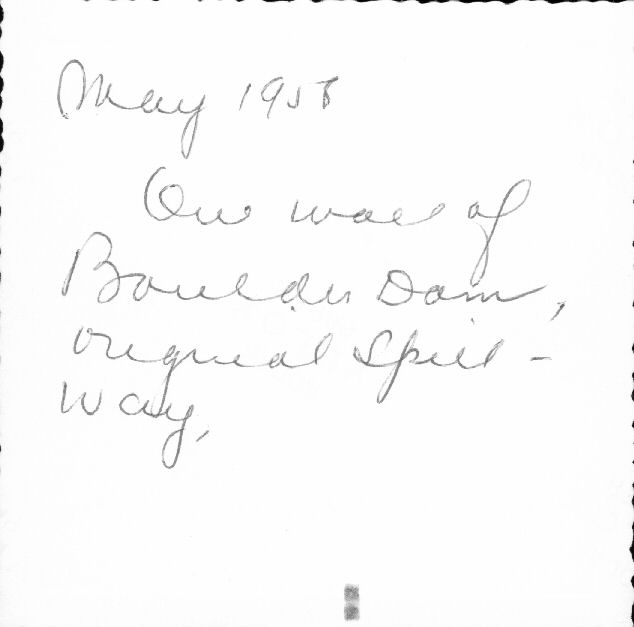 May 1958
One wall of
Boulder Dam,
original Spill-
way,